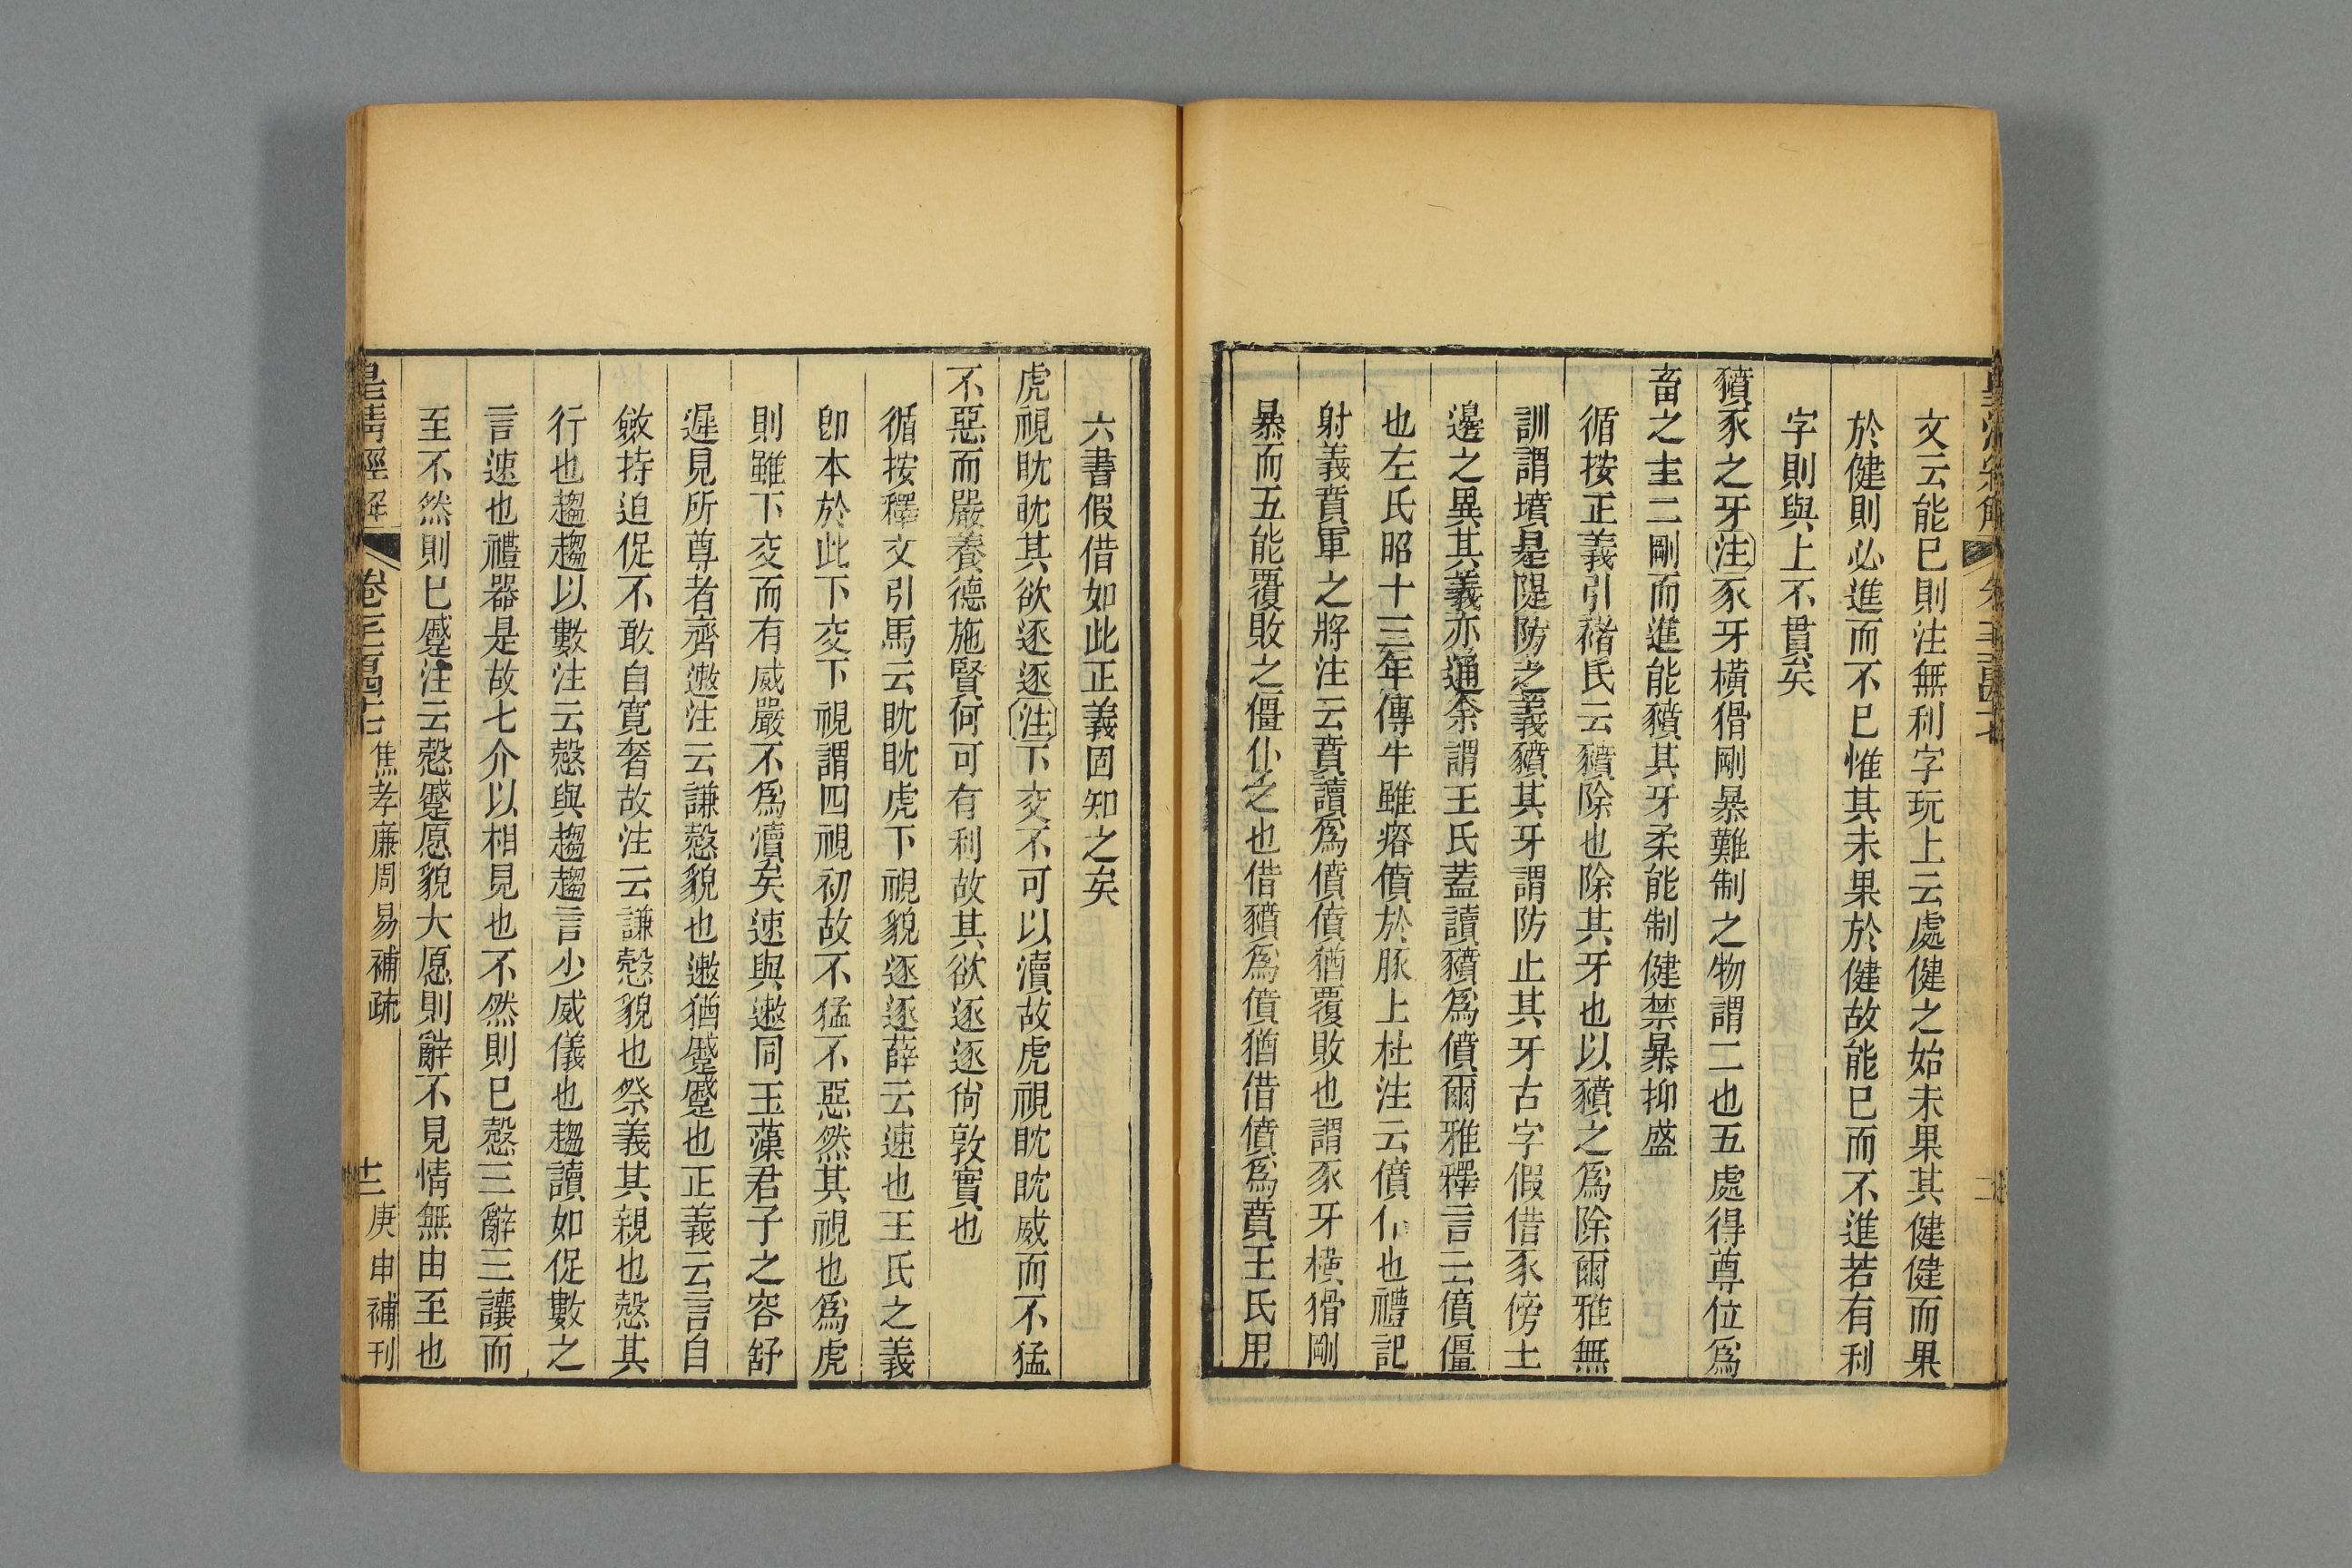 文云能巳則注無利字玩上云處健之始未果其健健而果
於健則必進而不巳惟其未果於健故能巳而不進若有利
字則與上不貫矣
豶豕之牙注豕牙橫猾剛暴難制之物謂二也五處得尊位爲
畜之主二剛而進能豶其牙柔能制健禁暴抑盛
循按正義引褚氏云豶除也除其牙也以豶之爲除爾雅無
訓謂墳是隄防之義豶其牙謂防止其牙古字假借豕傍土
邊之異其義亦通余謂王氏蓋讀豶爲僨爾雅釋言云僨僵
也左氏昭十三年傳牛雖瘠僨於豚上杜注云僨仆也禮記
射義賁軍之將注云賁讀爲僨僨猶覆敗也謂豕牙橫猾剛
暴而五能覆敗之僵仆之也借豶爲僨猶借僨爲賁王氏用
六書假借如此正義固知之矣
虎視眈眈其欲逐逐注下交不可以瀆故虎視眈眈威而不猛
不惡而嚴養德施賢何可有利故其欲逐逐尙敦實也
循按釋文引馬云眈眈虎下視貌逐逐薛云速也王氏之義
卽本於此下交下視謂四視初故不猛不惡然其視也爲虎
則雖下交而有威嚴不爲瀆矣速與遬同玉藻君子之容舒
遲見所尊者齊遬注云謙愨貌也遬猶蹙蹙也正義云言自
斂持迫促不敢自寬奢故注云謙愨貌也祭義其親也愨其
行也趨趨以數注云愨與趨趨言少威儀也趨讀如促數之
言速也禮器是故七介以相見也不然則巳愨三辭三讓而
至不然則巳蹙注云愨蹙愿貌大愿則辭不見情無由至也
皇清經解
卷三百四十七
焦孝廉周易補疏
十二
庚申補刊